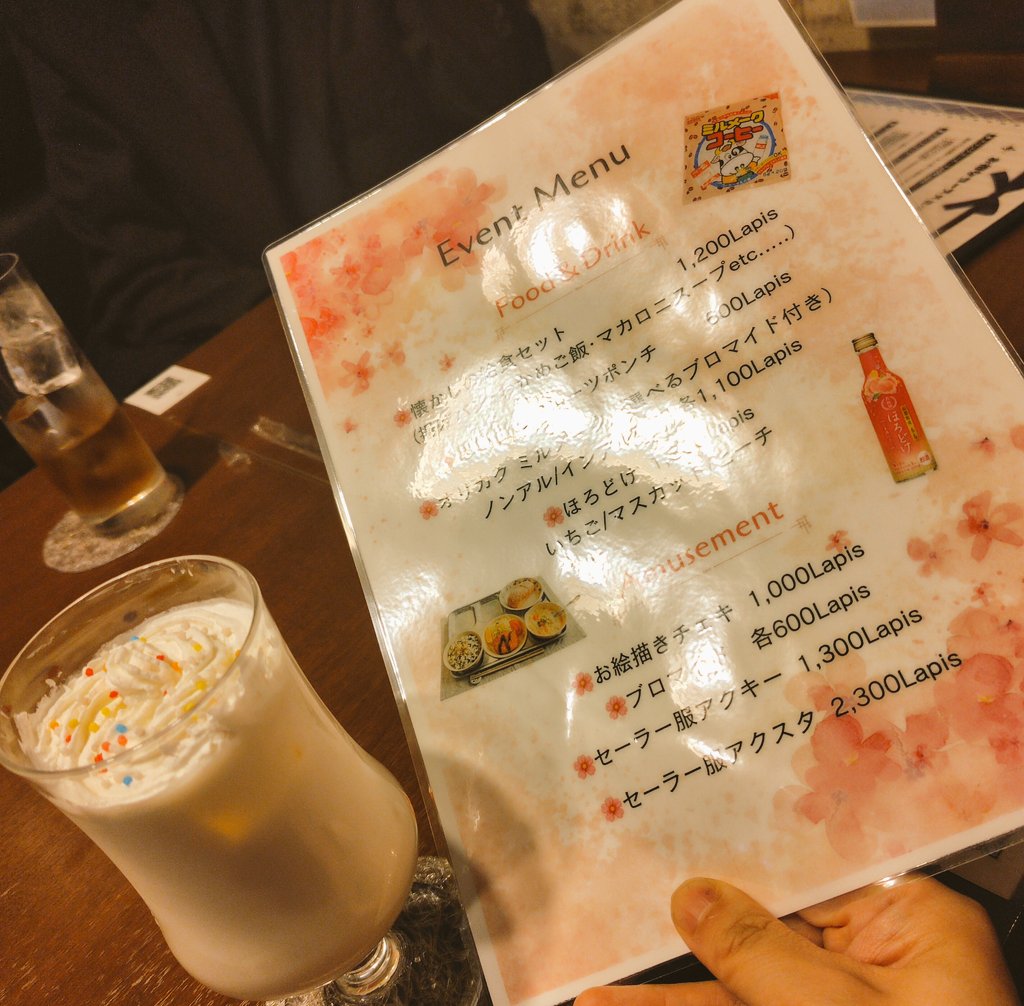 Event Menu
ミルメーク
コーヒー
Food & Drink
懐かしの 食セット 1,200Lapis
わかめご飯・マカロニスープetc.....)
ーツポンチ 600Lapis
選べるブロマイド付き)
オリカク ミル
ノンアル/イン 各1,100Lapis
ほろどけ
いちご/マスカット ーチ
ほろどけ
Amusement
お絵描きチェキ 1,000Lapis
ブロマ 各600Lapis
セーラー服アクキー 1,300Lapis
セーラー服アクスタ 2,300Lapis